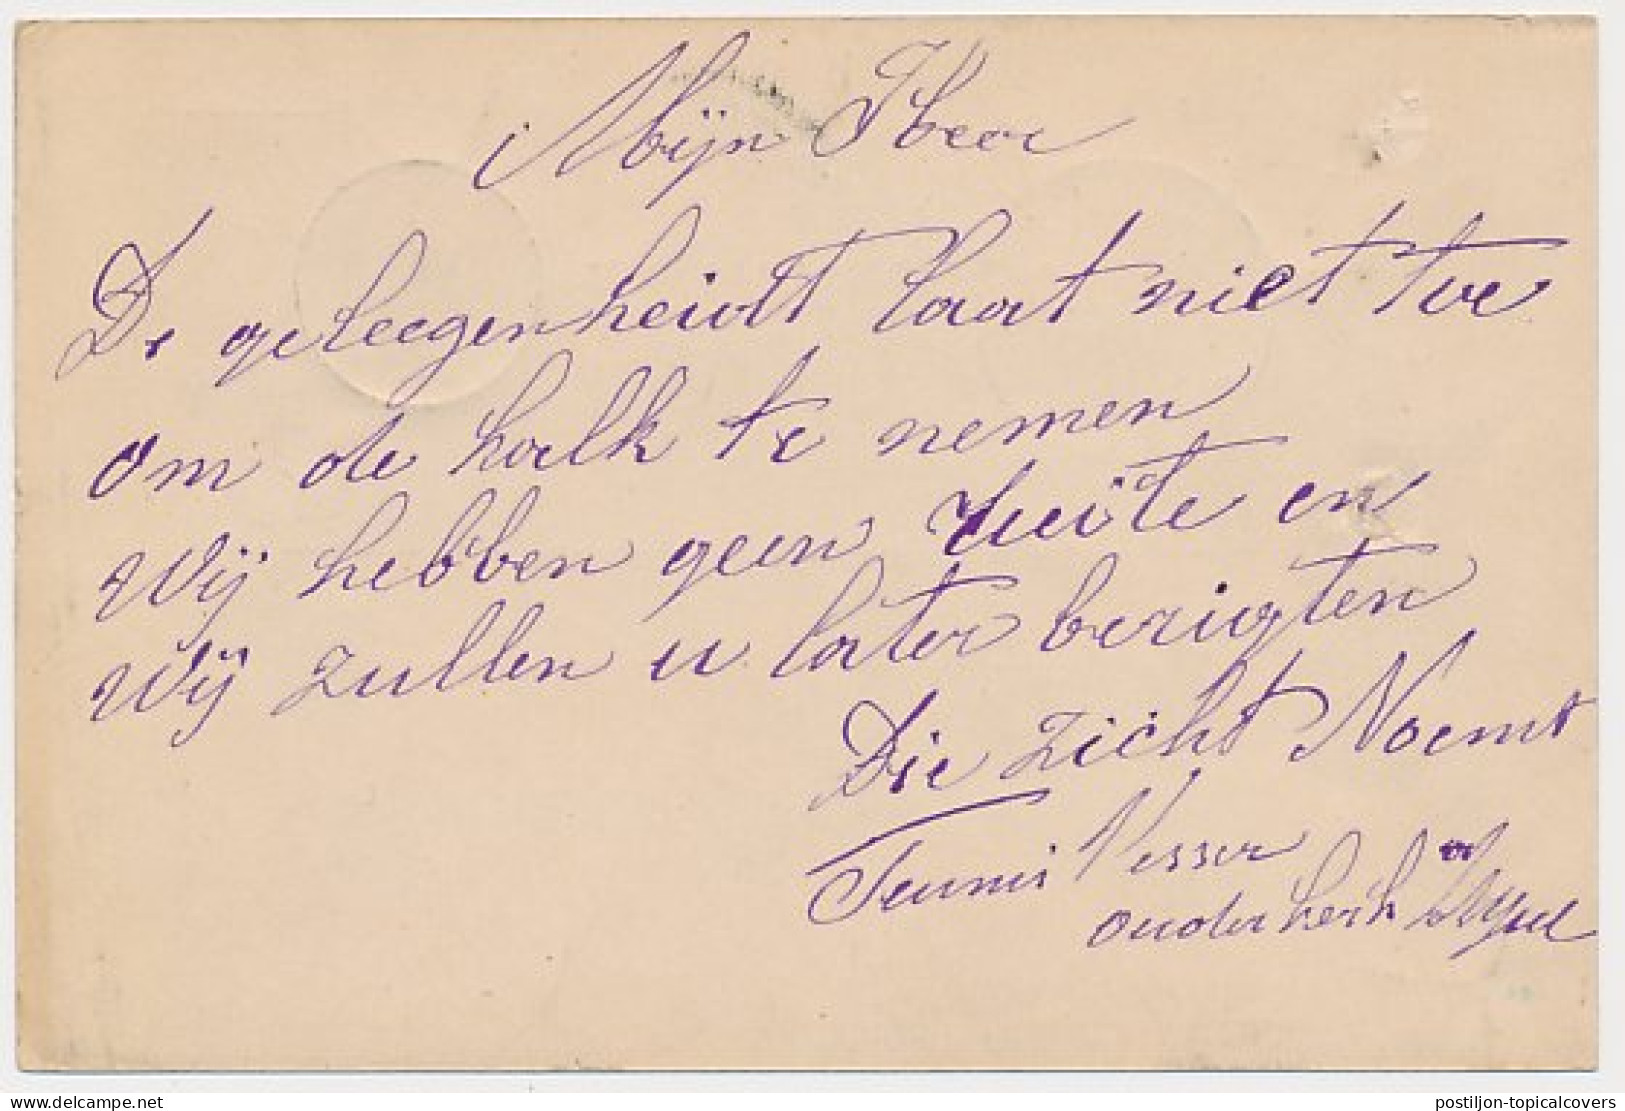 Mijn Heer
De geleegenheidt laat niet toe
om de kalk te nemen
wij hebben geen ruite en
wij zullen u later berigten
Die zicht Noemt
Teunis Visser
ouderkerk Ysel
postiljon-topicalcovers
www.delcampe.net